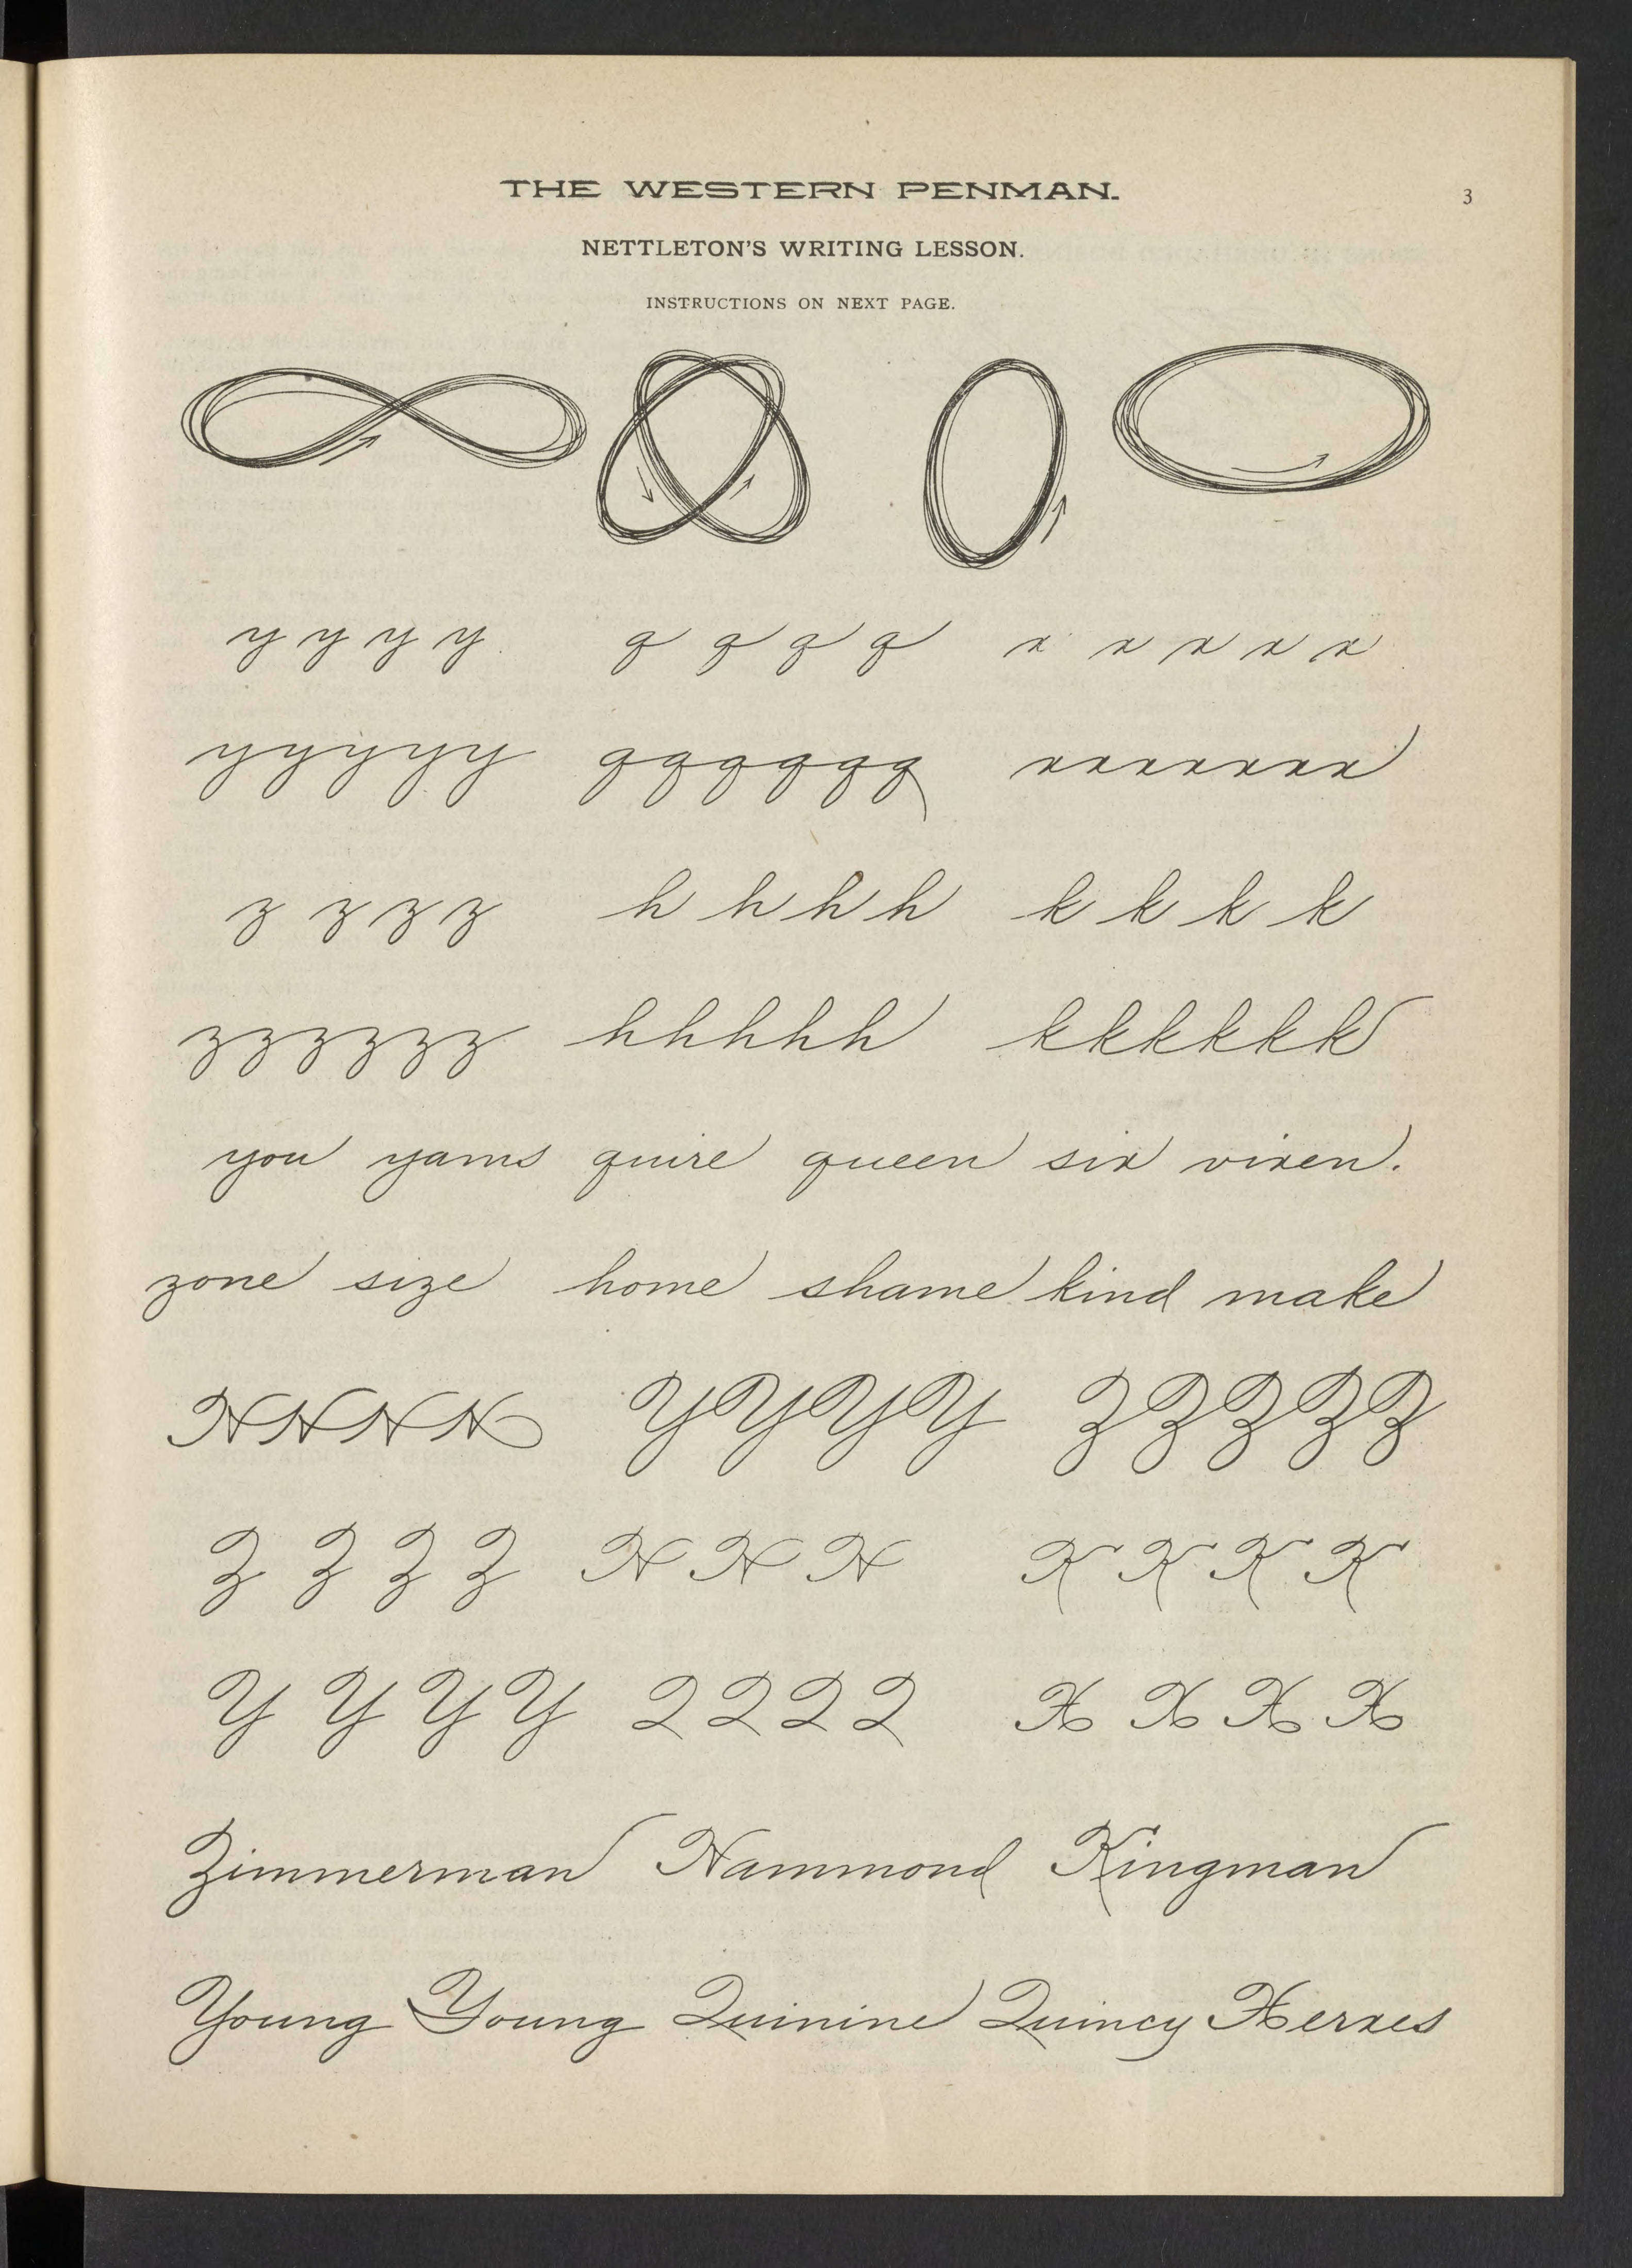 THE WESTERN PENMAN.
3
NETTLETON'S WRITING LESSON.
INSTRUCTIONS ON NEXT PAGE.
y y y y q q q q x x x x x
yyyyy qqqqqq xxxxxxx
z z z z h h h h k k k k
zzzzzz hhhhh kkkkkk
you yams quire queen six vixen.
zone size home shame kind make
HHHH YYYY ZZZZZ
Z Z Z Z H H H K K K K
Y Y Y Y Q Q Q Q X X X X
Zimmerman Hammond Kingman
Young Young Quinine Quincy Xerxes